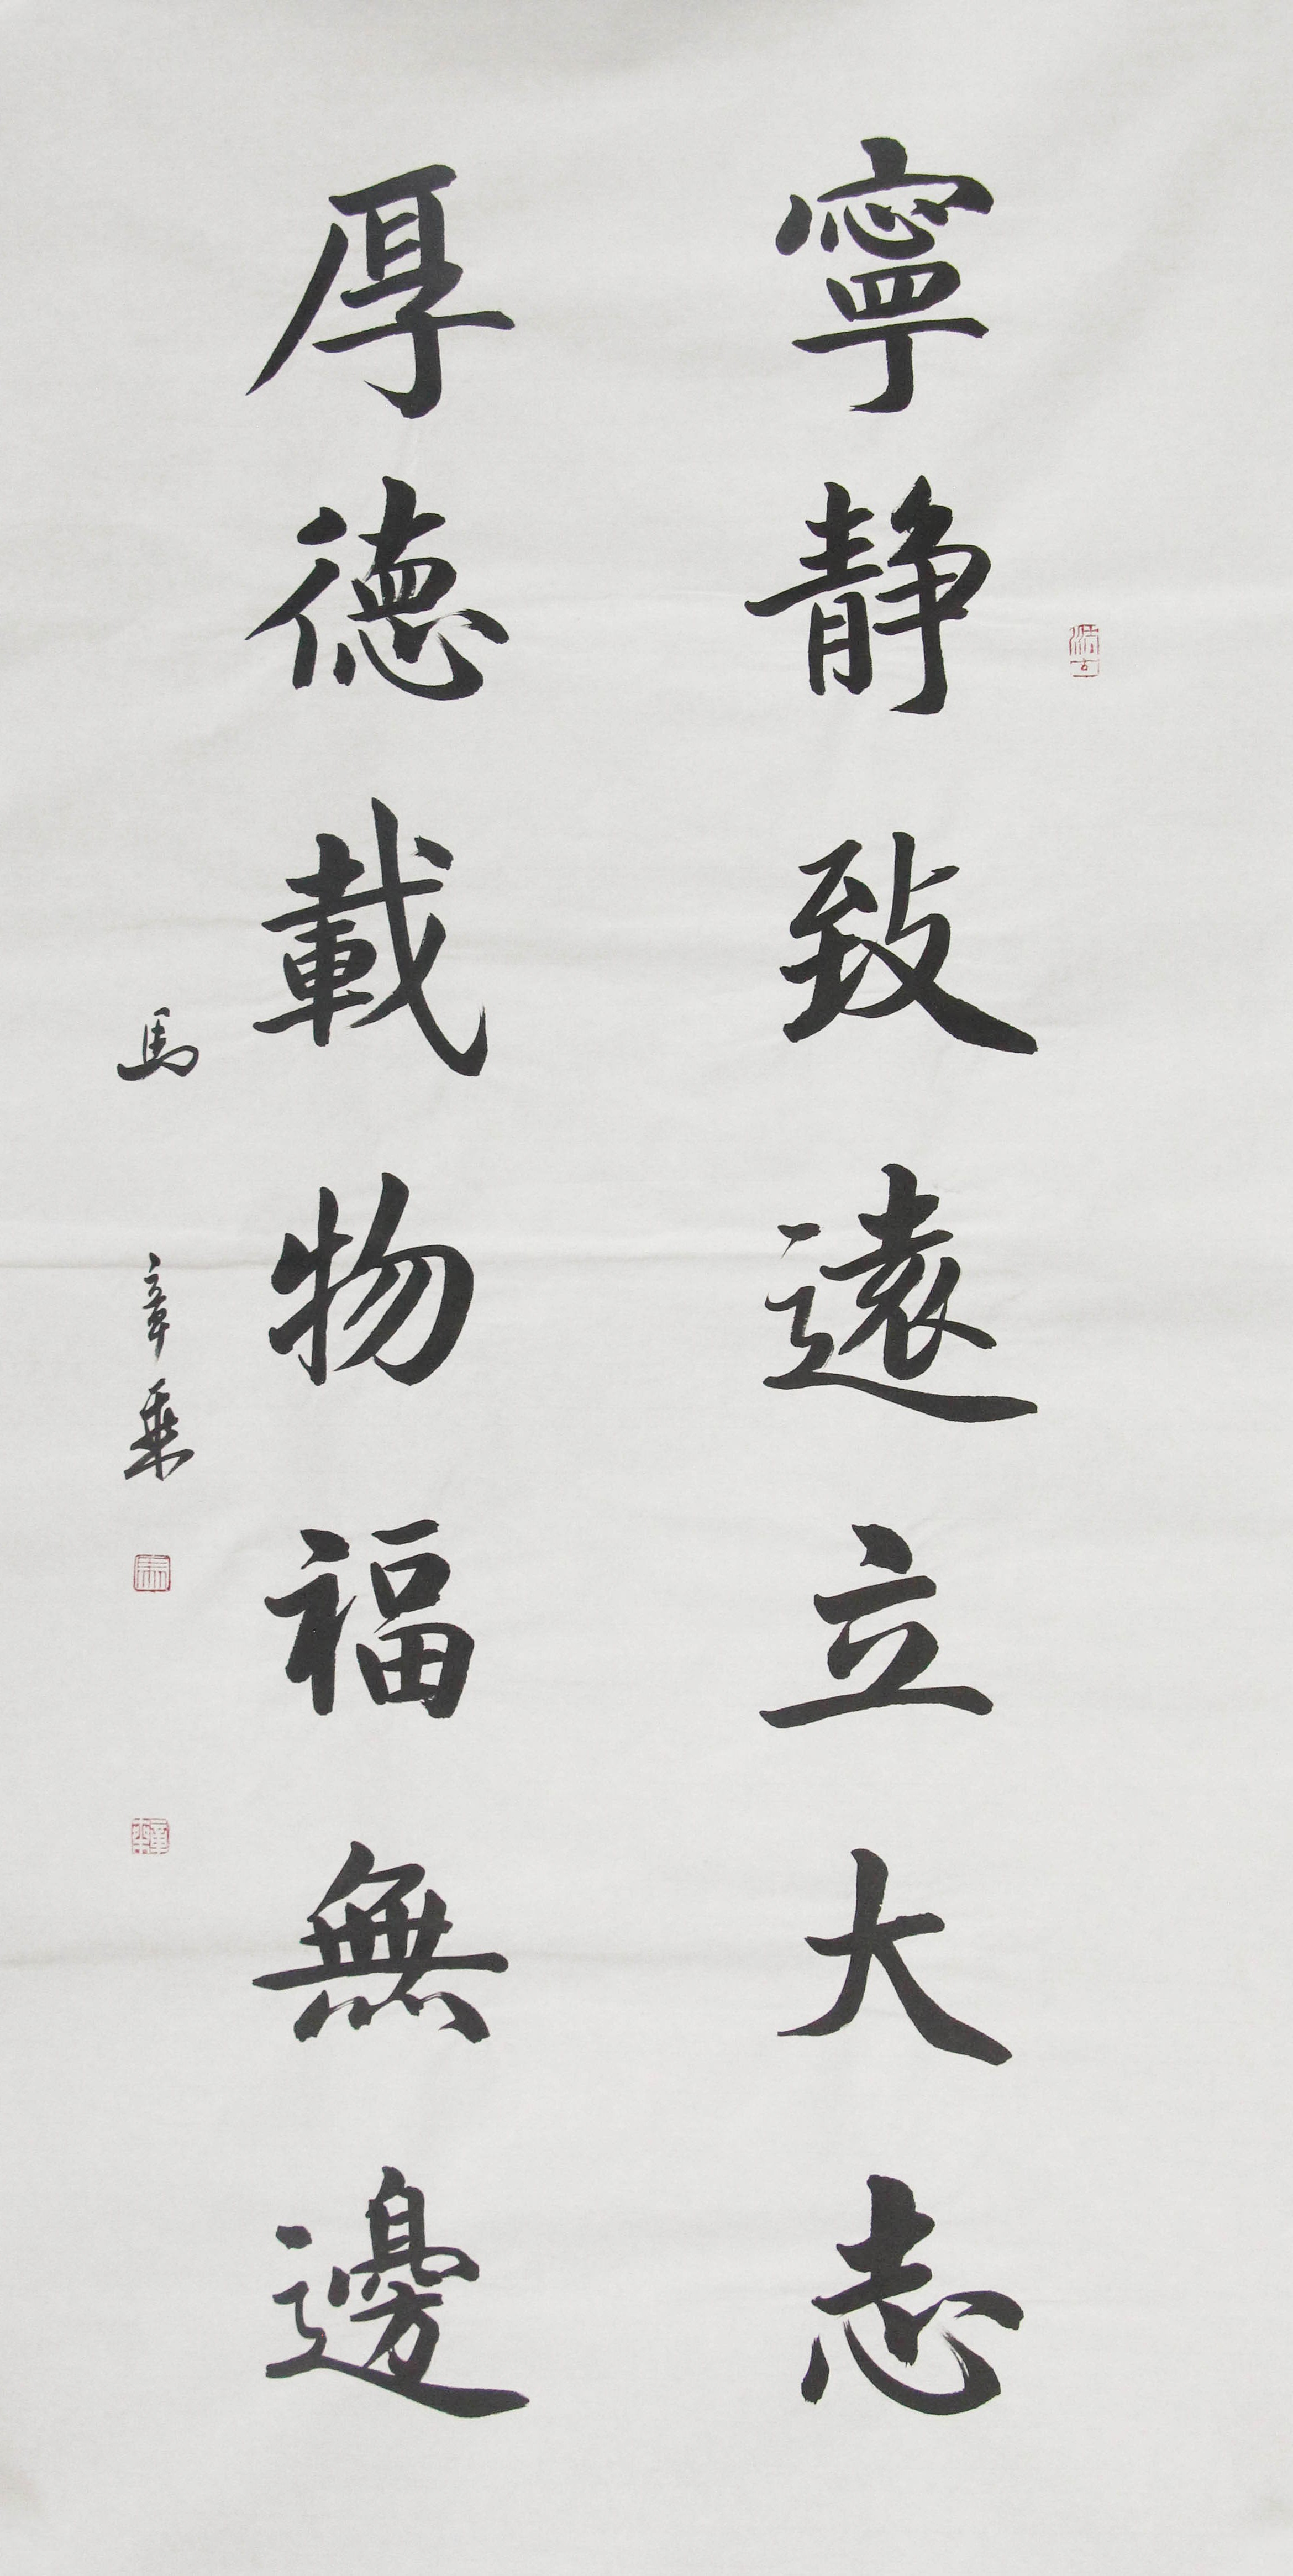 寧静致遠立大志
厚德載物福無邊
馬章乗